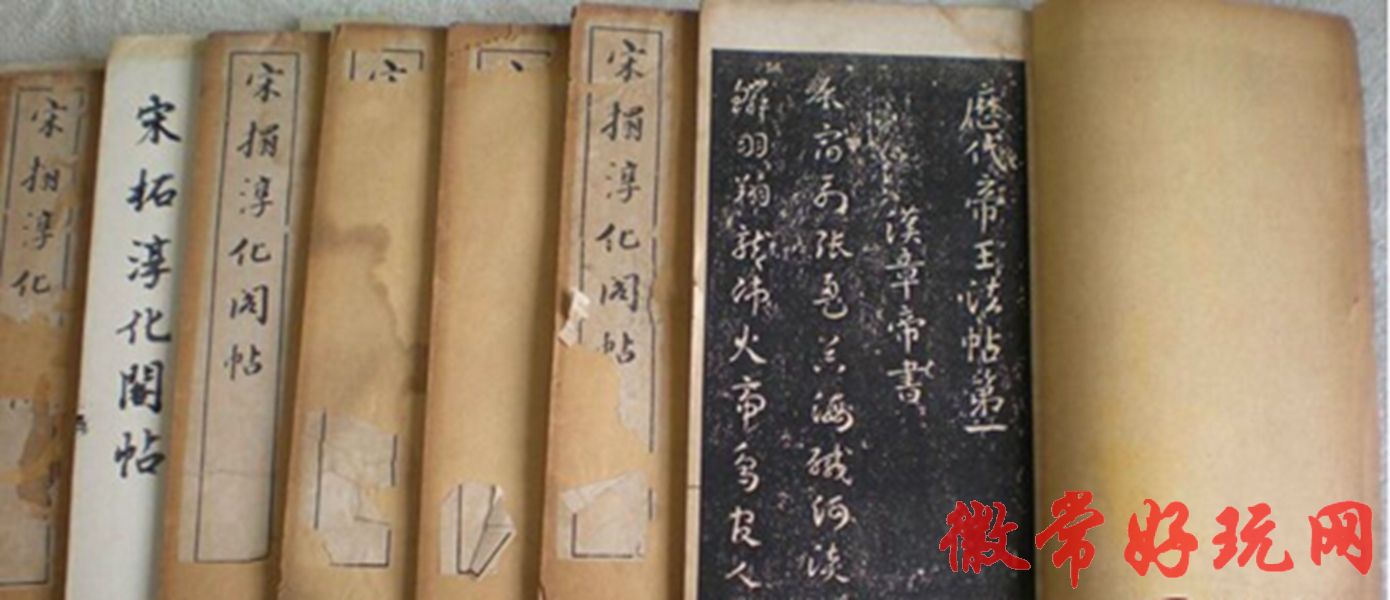 宋搨淳化
宋拓淳化閣帖
宋搨淳化閣帖
宋搨淳化閣帖
歷代帝王法帖第一
漢章帝書
辰宿列張海鹹河淡
鱗羽翔龍師火帝鳥官人
徽常好玩网